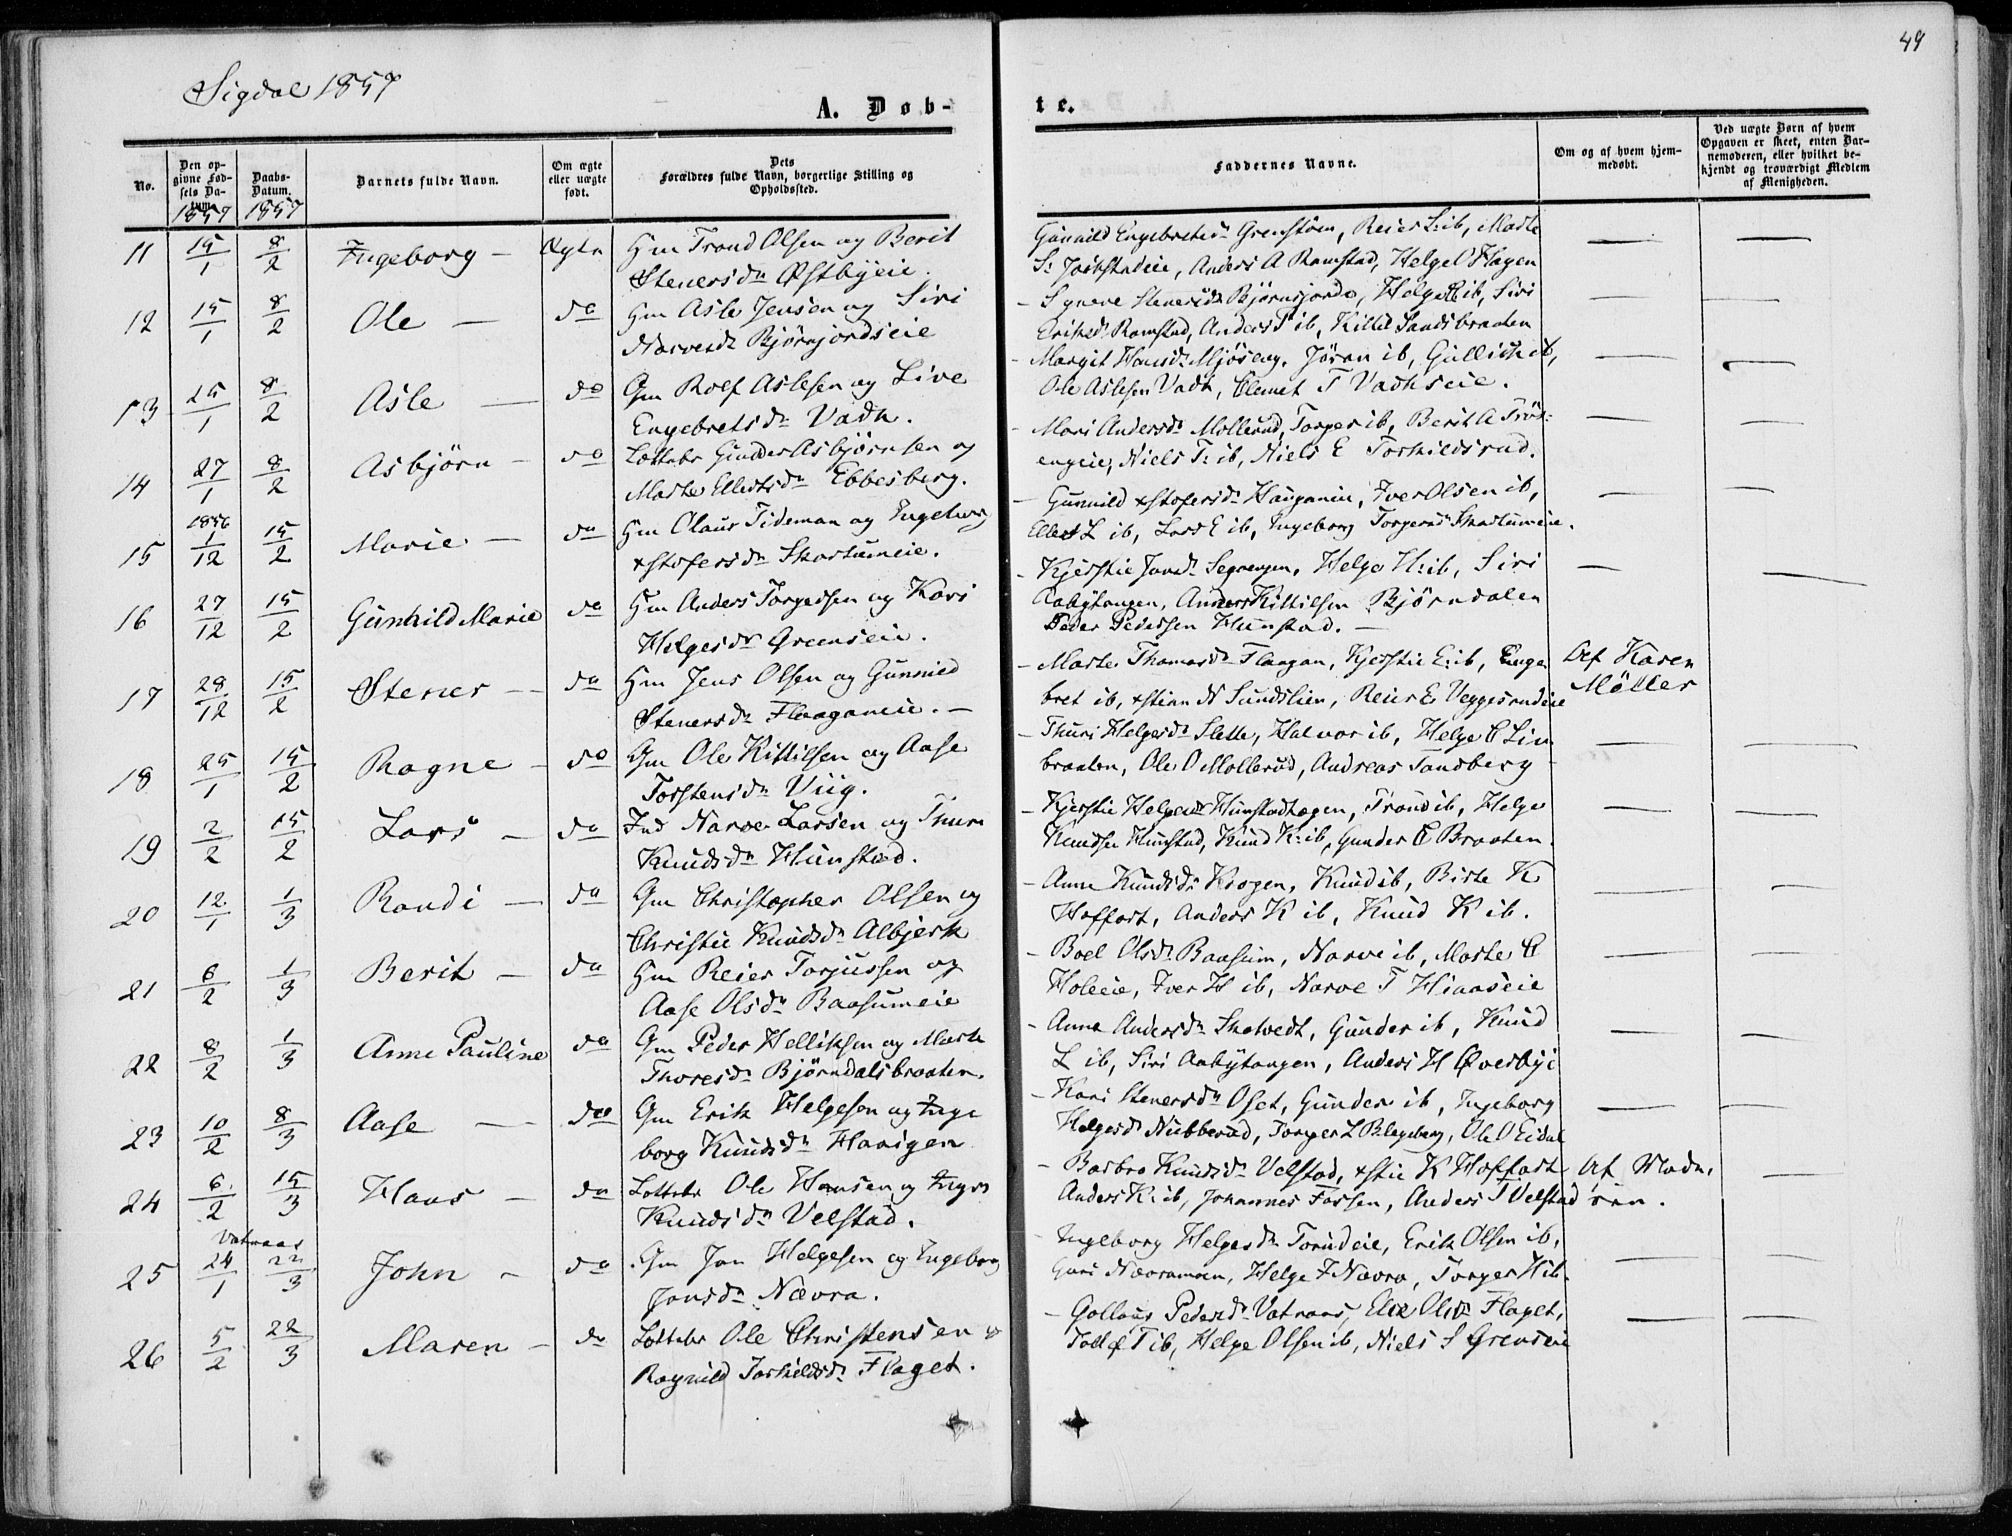 49
Sigdal 1857
A. Døb-
te.
No.
Den op-
givne Fød-
sels Da-
tum.
1857
Daabs-
Datum.
1857
Barnets fulde Navn.
Om ægte
eller uægte
født.
Dets
Forældres fulde Navn, borgerlige Stilling og
Opholdssted.
Faddernes Navne.
Om og af hvem hjem-
medøbt.
Ved uægte Børn af hvem
Opgaven er skeet, enten Bar-
nemoderen, eller hvilket be-
kjendt og troværdigt Medlem
af Menigheden.
11 15/1 8/2 Ingeborg - Ægte Hm Trond Olsen og Berit
Stenersdr Østbyeie.
Gunnild Engebretsdr Grenskoen, Reier ib, Marte
S: Anders A Ramstad, Helge Hagen
12 15/1 8/2 Ole - do Hm Asle Jensen og Siri
Narvesdr Bjørnjordseie
- Synneve Stenersdr Bjørnsjorde, Helge E ib, Siri
Eriksdr Ramstad, Anders T ib, Kittil Sandsbraaten
13 25/1 8/2 Asle - do Gm Rolf Aslesen og Live
Engebretsdr Vadh.
- Margit Hansdr Mjøseng. Jøran ib, Gullich ib,
Ole Aslesen Vadh, Clemet T Vadhseie.
14 27/1 8/2 Asbjørn - do Lottebr Gunder Asbjørnsen og
Marte Ellertsdr Ebbesberg.
- Mari Andersdr Mollerud, Torger ib, Berit A Frøs-
engeie, Niels T: ib, Niels E Torkildsrud.
15 1856 1/12 15/2 Marie - do Hm Claus Tideman og Ingeborg
xstofersdr Skartumeie.
- Gunnild xstofersdr Hauganeie, Iver Olsen ib,
Ellert L ib, Lars E ib, Ingeborg Torgersdr Skartumeie.
16 27/12 15/2 Gunhild Marie do Hm Anders Torgersen og Kari
Helgesdr Greenseie.
- Kjerstie Jonsdr Segnengen, Helge H: ib, Siri
Aabytangen, Anders Kittilsen Bjørndalen
Peder Pedersen Hunstad. -
17 28/12 15/2 Stener - do Hm Jens Olsen og Gunnild
Stenersdr Flaaganeie. -
- Marte Thomasdr Flaagan, Kjerstie E: ib, Enge
bret ib, xstian N Sundslien, Reier E Veggesrudeie
Af Karen
Møller
18 25/1 15/2 Ragne - do Gm Ole Kittilsen og Aase
Torstensdr Viig.
- Thuri Helgesdr Slette, Halvor ib, Helge C Lin
braaten, Ole O Mollerud, Andreas Tandberg
19 2/2 15/2 Lars - do Ind Narve Larsen og Thuri
Knudsdr Hunstad.
- Kjerstie Helgesdr Hunstadhagen, Trond ib, Helge
Knudsen Hunstad, Knud K: ib, Gunder E Braaten.
20 12/1 1/3 Randi - do Gm Christopher Olsen og
Christie Knudsdr Albjerk
- Anne Knudsdr Krogen, Knud ib, Birte K
Hoffart, Anders K ib, Knud K ib.
21 6/2 1/3 Berit - do Hm Reier Torjussen og
Aase Olsdr Baasumeie
- Boel Olsdr Baasum, Narve ib, Marte E
Holeie, Iver H ib, Narve T Hiaaseie
22 8/2 1/3 Anne Pauline do Gm Peder Helliksen og Marte
Thoresdr Bjørndalsbraaten.
- Anna Andersdr Skatvedt, Gunder ib, Knud
L ib, Siri Aabytangen, Anders H Øverbye
23 10/2 8/3 Aase - do Gm Erik Helgesen og Inge
borg Knudsdr Haavigen
- Kari Stenersdr Oset, Gunder ib, Ingeborg
Helgesdr Nubberud, Torger L, Ole O Eidal
24 6/2 15/3 Hans - do Lottebr Ole Hansen og Inger
Knudsdr Velstad.
- Barbro Knudsdr Velstad, xstie K Hoffart
Anders K: ib, Johannes Fossen, Anders T Velstad
Af Mado,
ren.
25 Vatnaas 24/1 22/3 John - do Gm Jon Helgesen og Ingeborg
Jonsdr Nævra.
- Ingeborg Helgesdr Torudeie, Erik Olsen ib,
Guri Nævramoen, Helge J Nævra, Torger H ib.
26 5/2 22/3 Maren - do Lottebr Ole Christensen &
Ragnild Torkildsdr Flaget.
- Gollaug Pedersdr Vatnaas, Elie Olsdr Flaget,
Tollef T ib, Helge Olsen ib, Niels S Grenseie